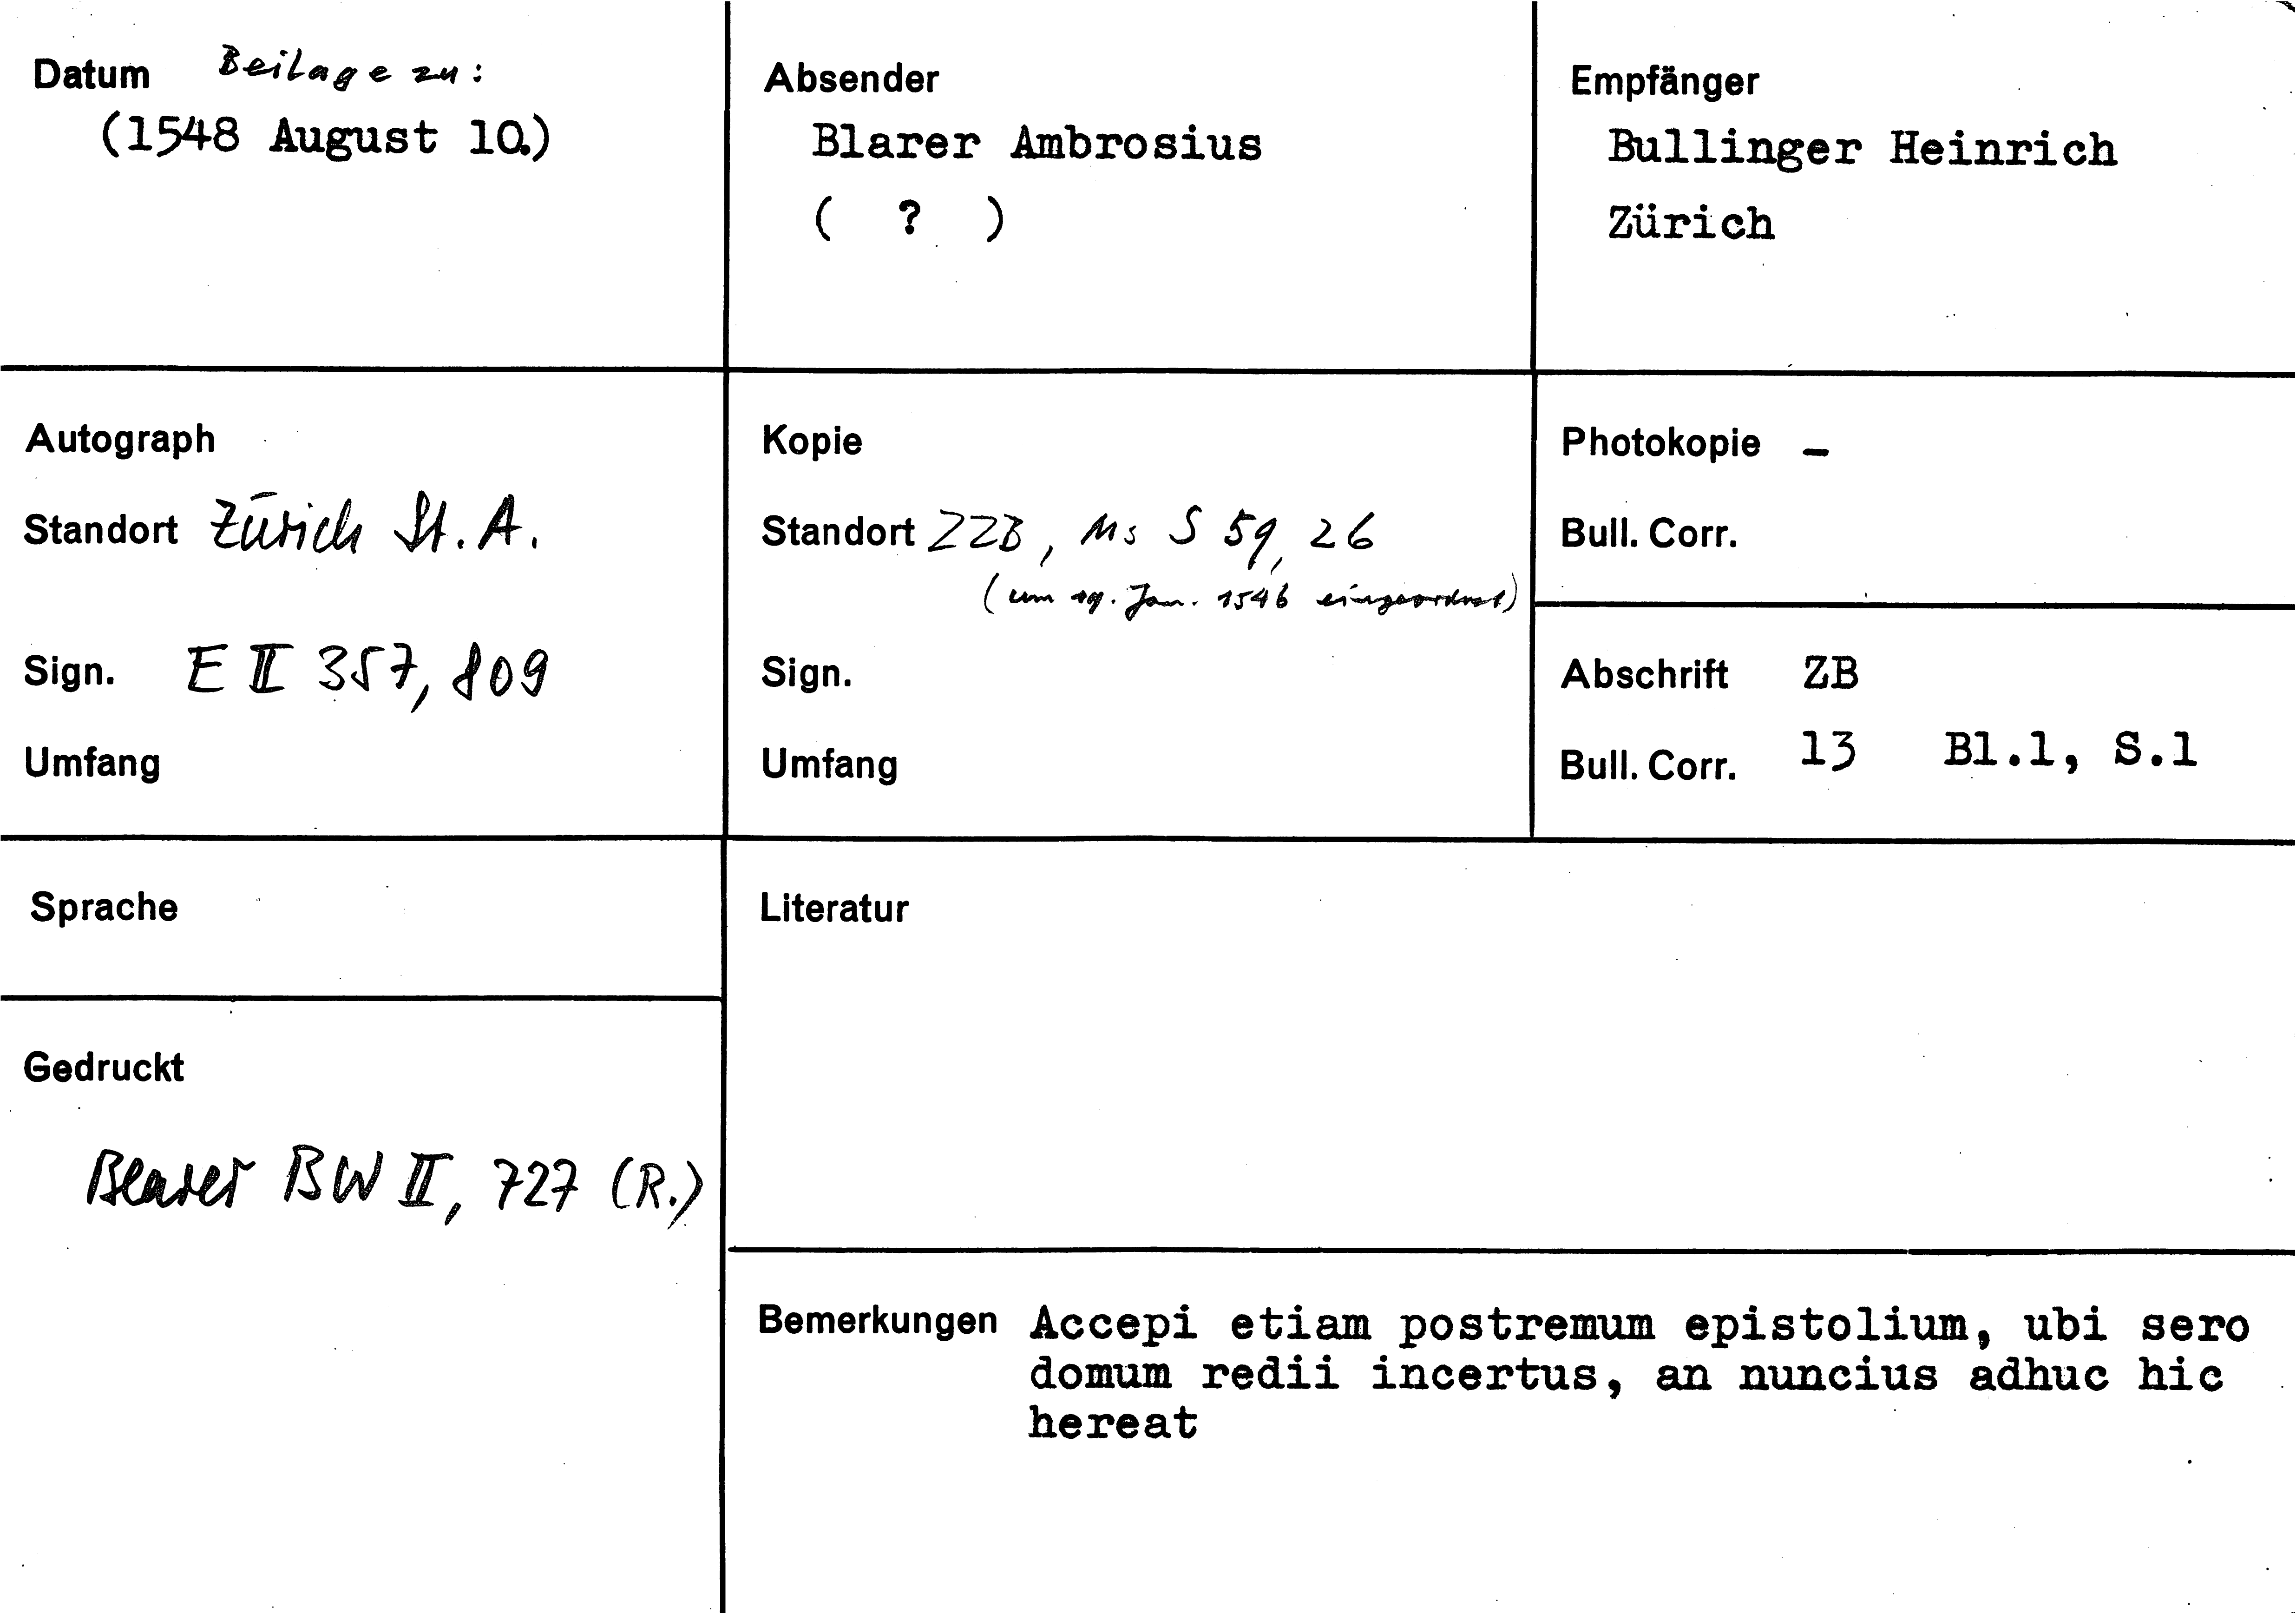 Datum Beilage zu:
(1548 August 10.)
Absender
Blarer Ambrosius
( ? )
Empfänger
Bullinger Heinrich
Zürich
Autograph
Standort Zürich St. A.
Sign. E II 357, 809
Umfang
Kopie
Standort ZZB, Ms S 59, 26
(um 19. Jan. 1546 eingeordnet)
Sign.
Umfang
Photokopie –
Bull. Corr.
Abschrift ZB
Bull. Corr. 13 Bl.1, S.1
Sprache
Literatur
Gedruckt
Blarer BW II, 727 (R.)
Bemerkungen Accepi etiam postremum epistolium, ubi sero
domum redii incertus, an nuncius adhuc hic
hereat